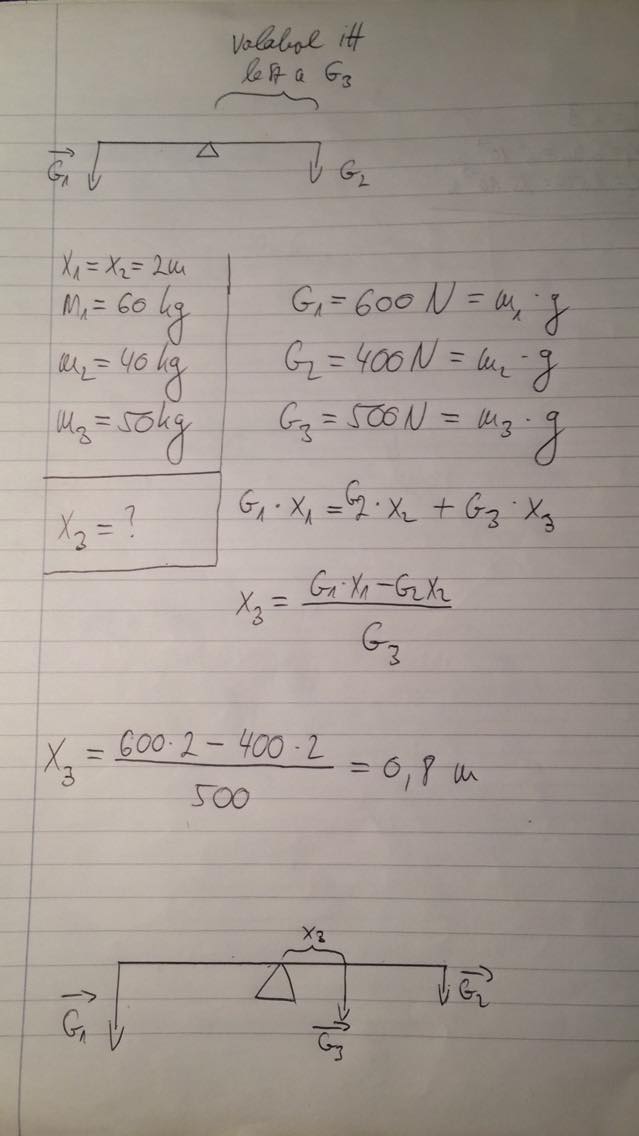 Valahol itt
lesz a G₃
G₁
G₂
X₁ = X₂ = 2m
M₁ = 60 kg
m₂ = 40 kg
m₃ = 50 kg
X₃ = ?
G₁ = 600 N = m₁ · g
G₂ = 400 N = m₂ · g
G₃ = 500 N = m₃ · g
G₁ · X₁ = G₂ · X₂ + G₃ · X₃
X₃ = (G₁ · X₁ − G₂ X₂) / G₃
X₃ = (600 · 2 − 400 · 2) / 500 = 0,8 m
X₃
G₁
G₃
G₂